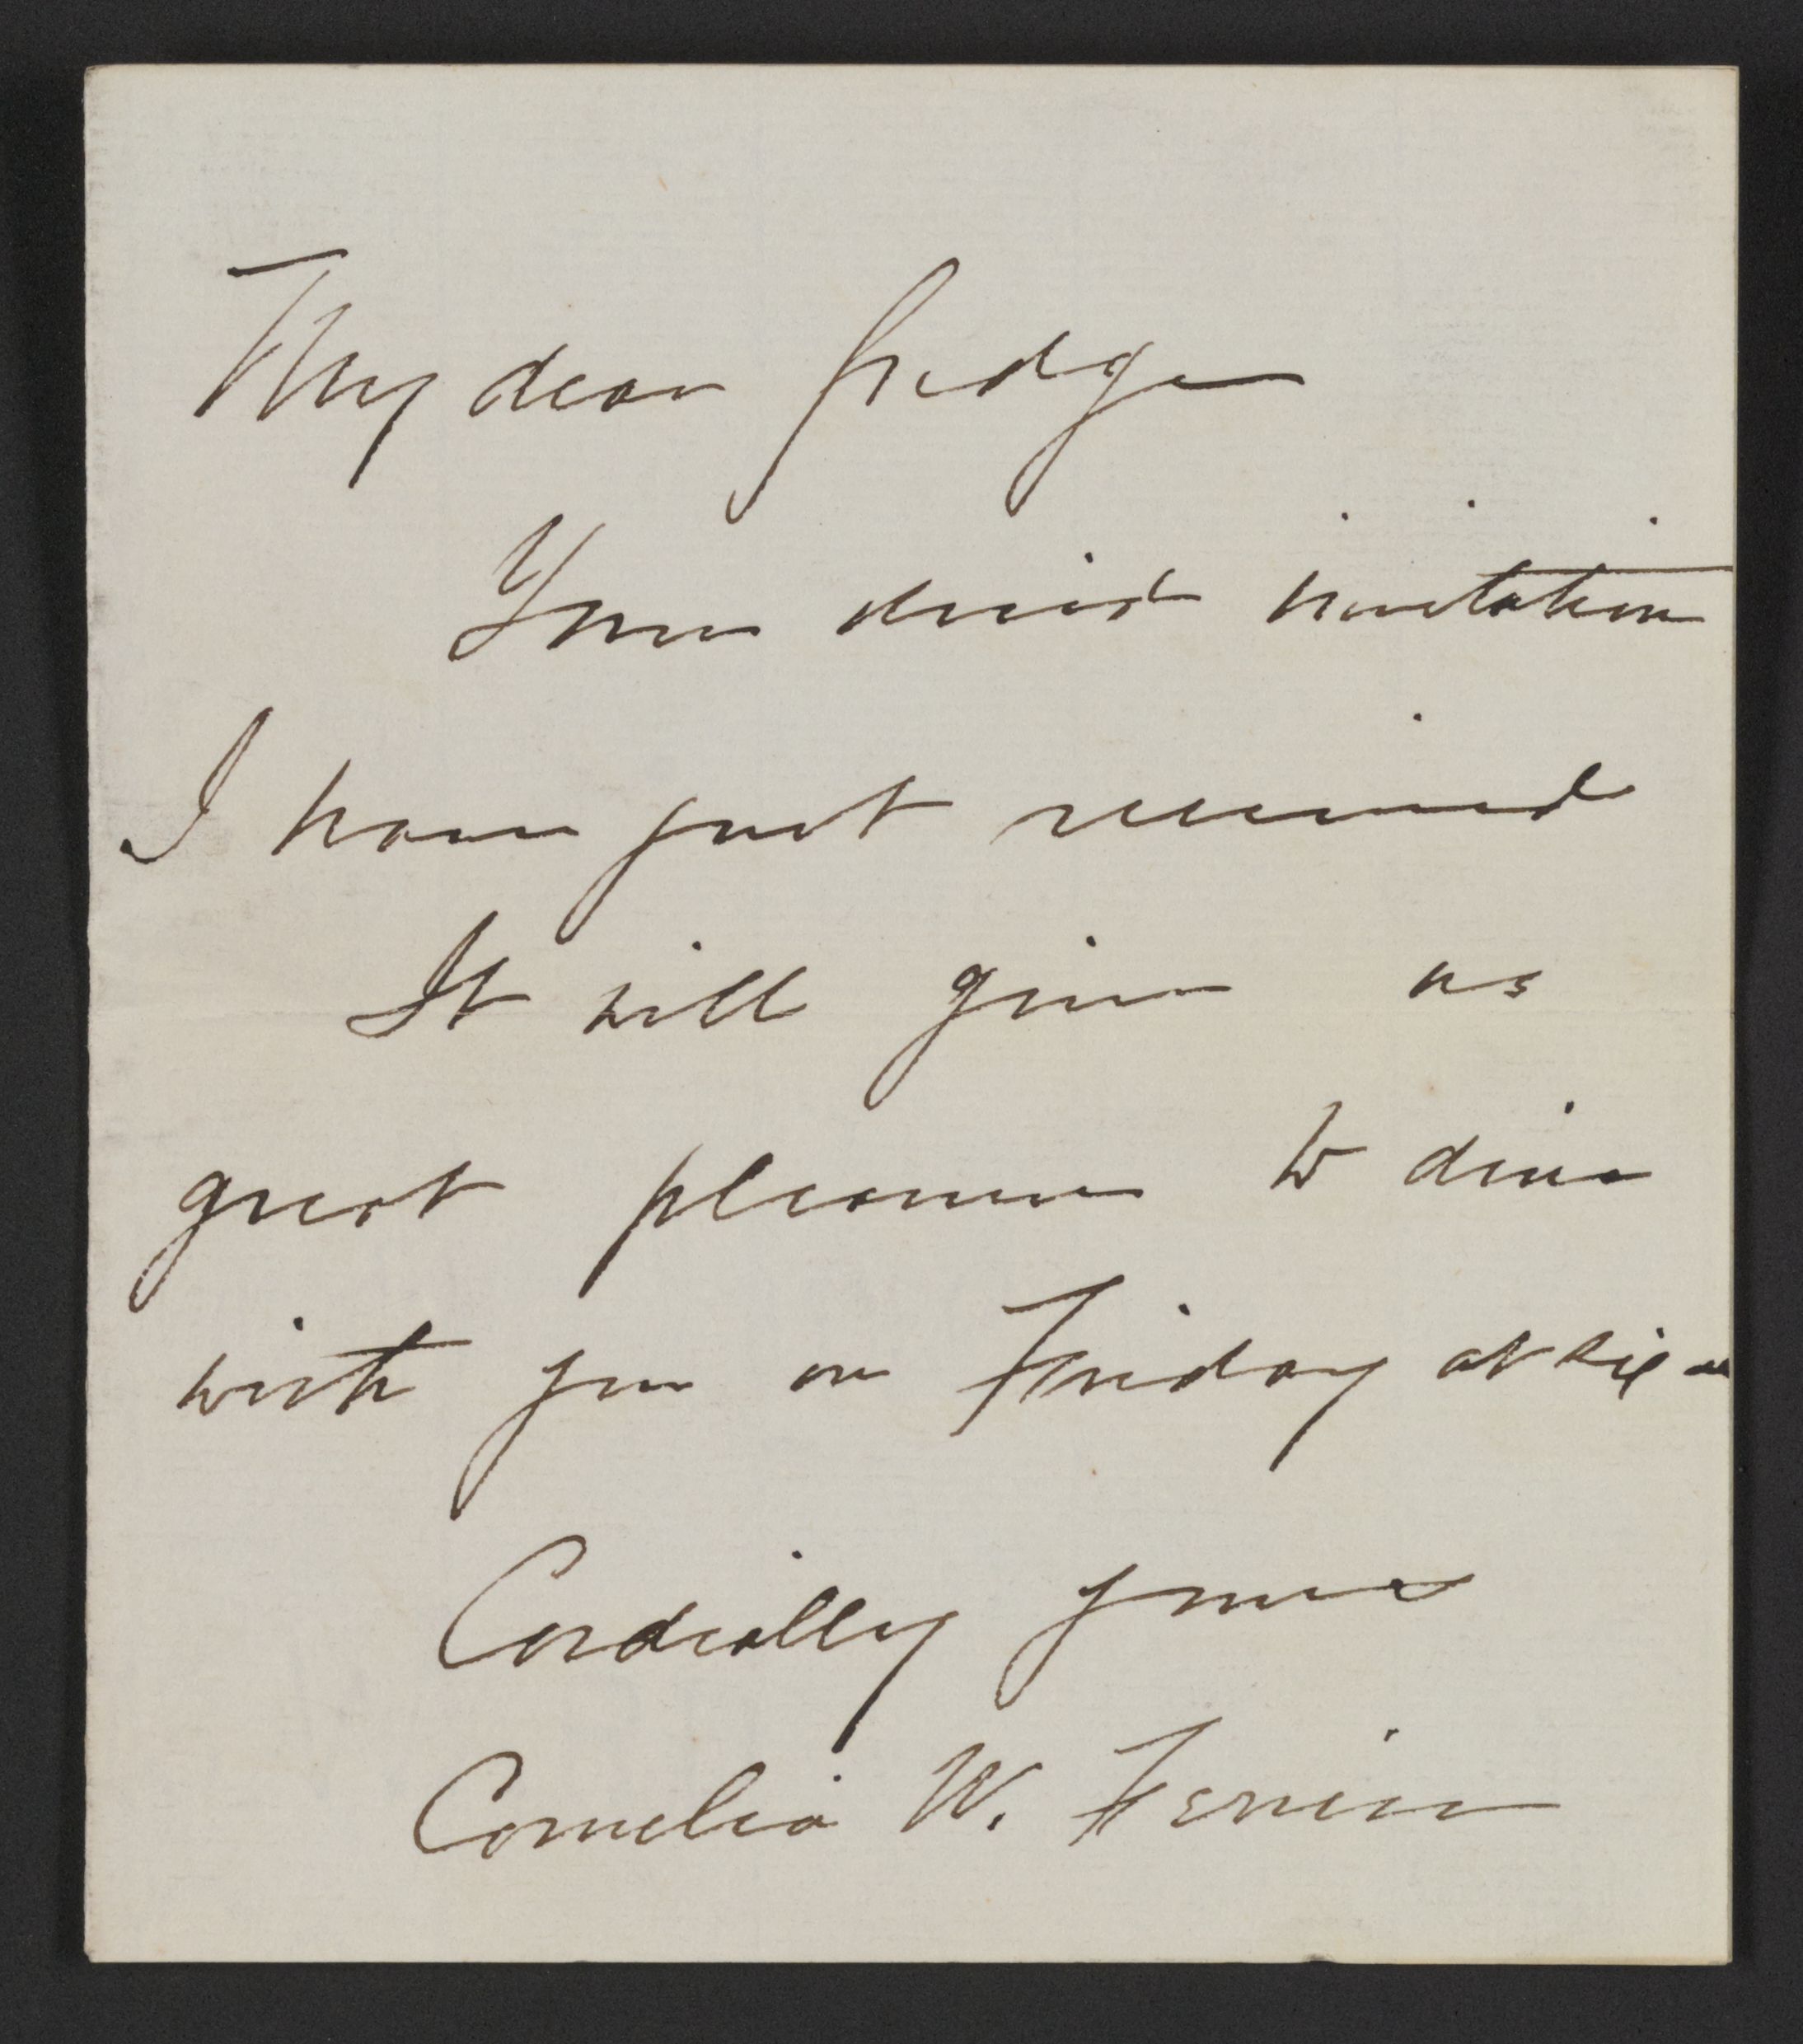 My dear Judge
Your kind invitation
I have just received
It will give us
great pleasure to dine
with you on Friday at six
Cordially yours
Cornelia W.